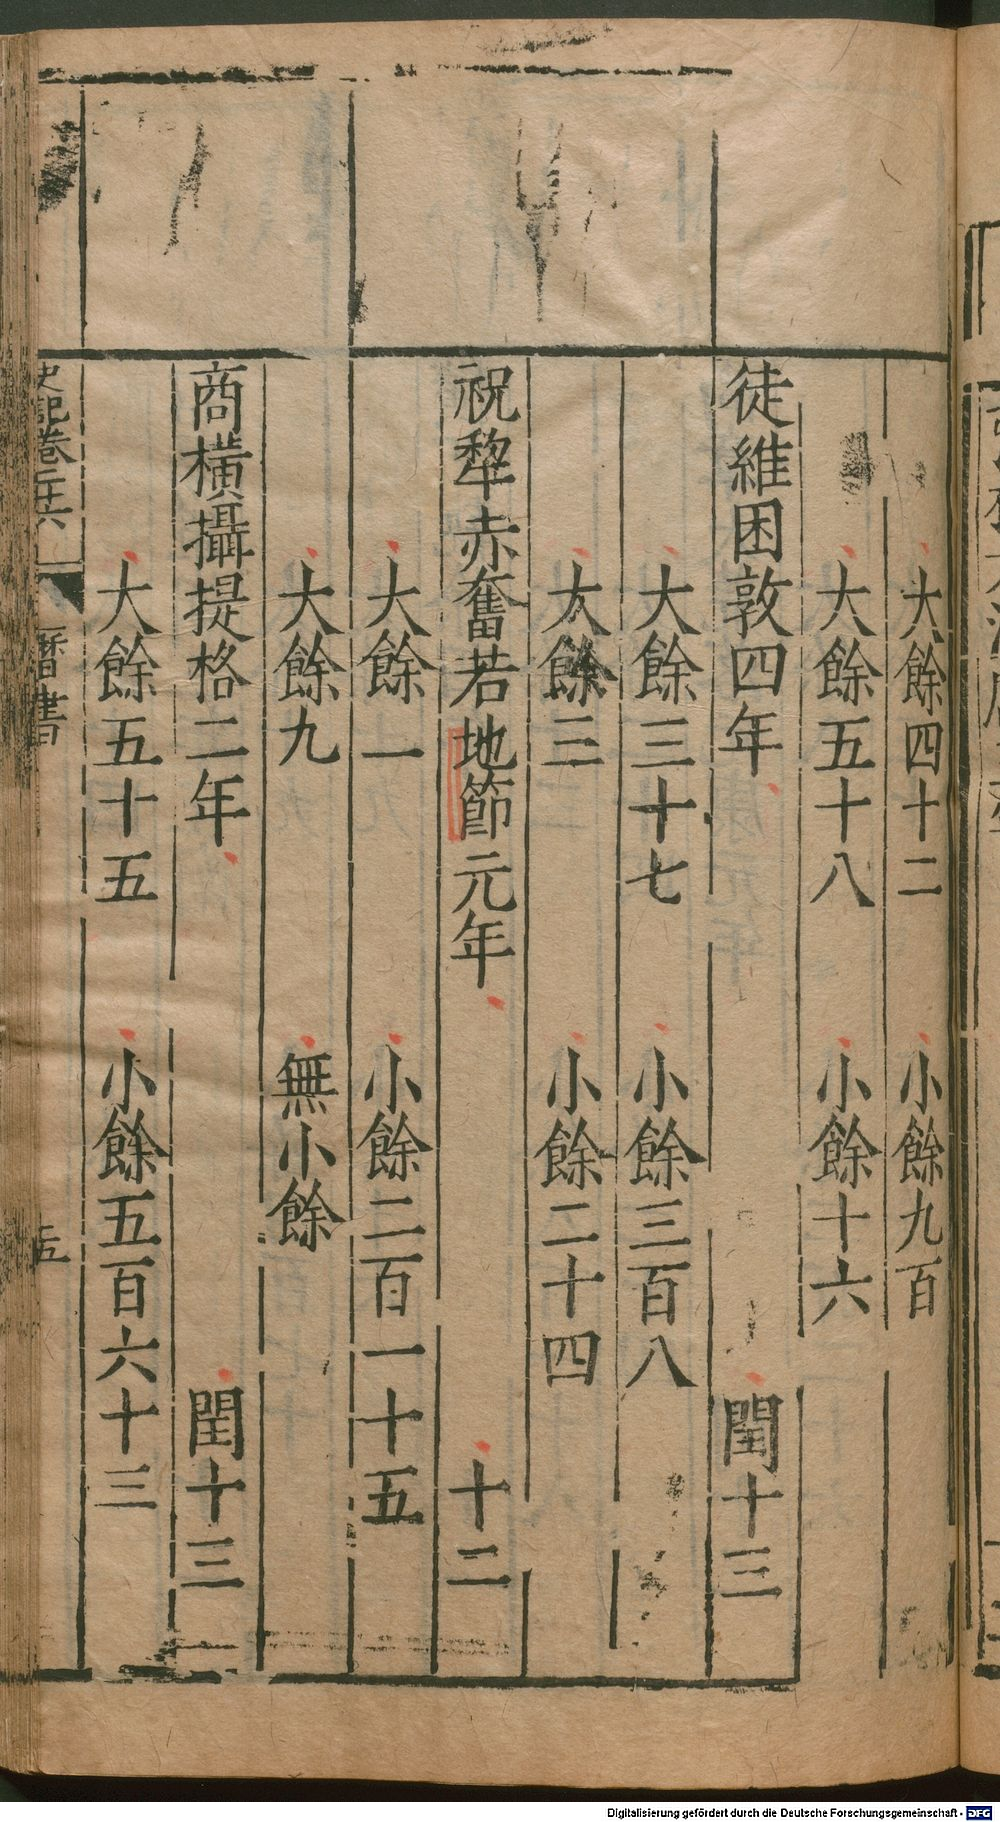 大餘四十二 小餘九百
大餘五十八 小餘十六
徒維困敦四年 閏十三
大餘三十七 小餘三百八
大餘三 小餘二十四
祝犂赤奮若地節元年 十二
大餘一 小餘二百一十五
大餘九 無小餘
商橫攝提格二年 閏十三
大餘五十五 小餘五百六十三
史記卷二六 曆書
Digitalisierung gefördert durch die Deutsche Forschungsgemeinschaft - DFG